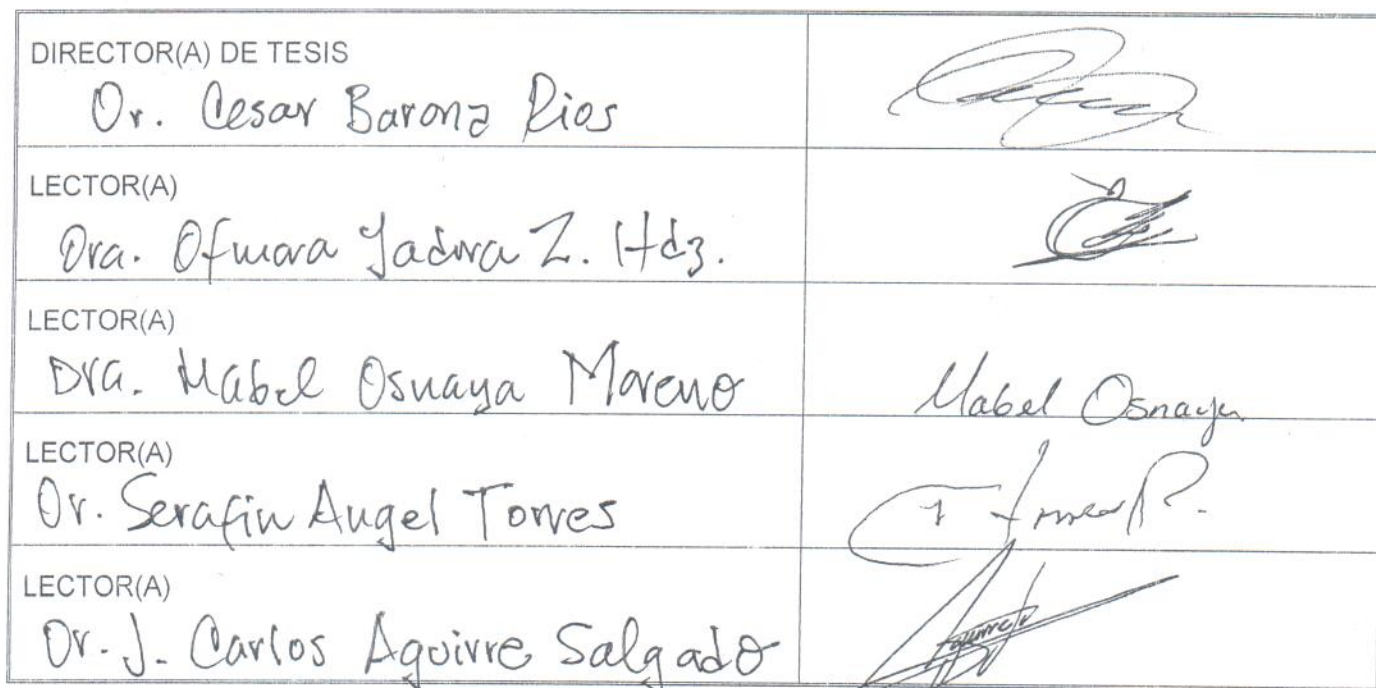 DIRECTOR(A) DE TESIS
Dr. Cesar Barona Rios
LECTOR(A)
Dra. Ofmara Yadira Z. Hdz.
LECTOR(A)
Dra. Mabel Osnaya Moreno
Mabel Osnaya
LECTOR(A)
Dr. Serafin Angel Torres
LECTOR(A)
Dr. J. Carlos Aguirre Salgado